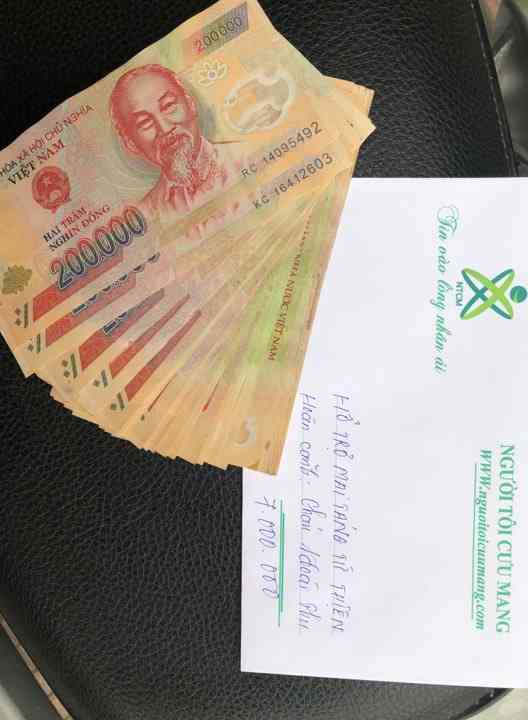 200000
HÒA XÃ HỘI CHỦ NGHĨA
VIỆT NAM
HAI TRĂM
NGHÌN ĐỒNG
200.000
RC 14095492
KC 16412603
NHÀ NƯỚC VIỆT NAM
Tin vào lòng nhân ái
NTCM
NGƯỜI TÔI CƯU MANG
WWW.nguoitoicuumang.com
HỖ TRỢ MAI TÁNG TỪ THIỆN
Hoàn cảnh:
7.000.000